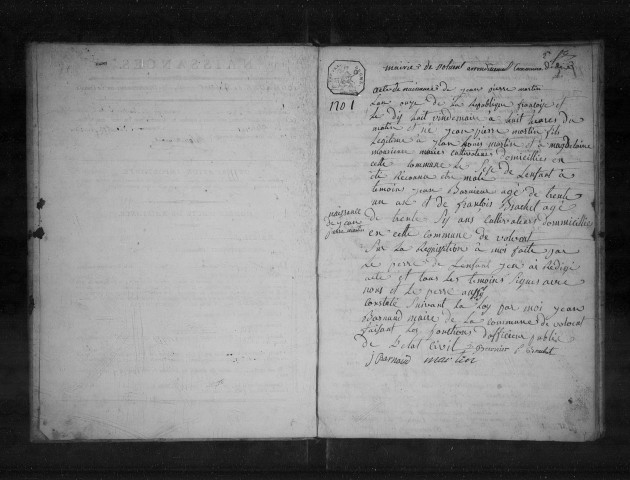 NAISSANCES
mairie de volvent arrondissement Commune
acte de naissance de jean pierre martin
Lan onze de La Republique françoise et
Le dix huit vindemaire a huit heures du
matin et né jean pierre martin fils
Legitime a jean Louis martin et a magdelaine
mariés cultivateurs domiciliés en
cette commune Le sexe de Lenfant à
été Reconnu etre male
temoins jean Bernier agé de trente
un ans et de francois Brachet agé
de trente six ans cultivateurs dommiciliés
en cette commune de volvent
Sur La Requisition a moi faite par
Le perre de Lenfant jen ai Rédigé
acte et tous les temoins signés avec
nous et Le perre aussy
constaté suivant La Loy par moi jean
Barnaud maire de La commune de volvent
faisant Les fonctions dofficier public
de Letat Civil
j Barnaud martin
naissance
de jean
pierre martin